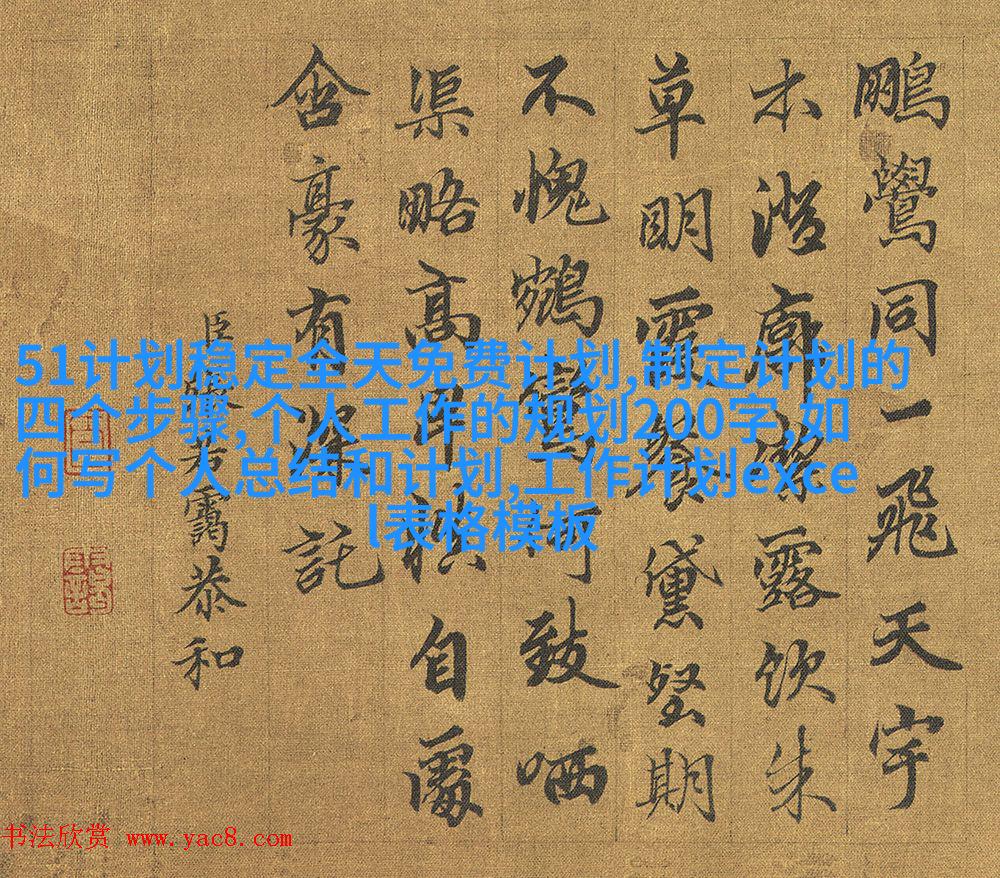 鵬鷽同一飛天宇
木澄廓潔露飲朱
草明霞餐黛壑期
不愧鵷鸞可致哂
渠略高自屬
含豪有深託
臣若靄恭和
51计划稳定全天免费计划,制定计划的
四个步骤,个人工作的规划200字,如
何写个人总结和计划,工作计划exce
l表格模板
书法欣赏 www.yac8.com